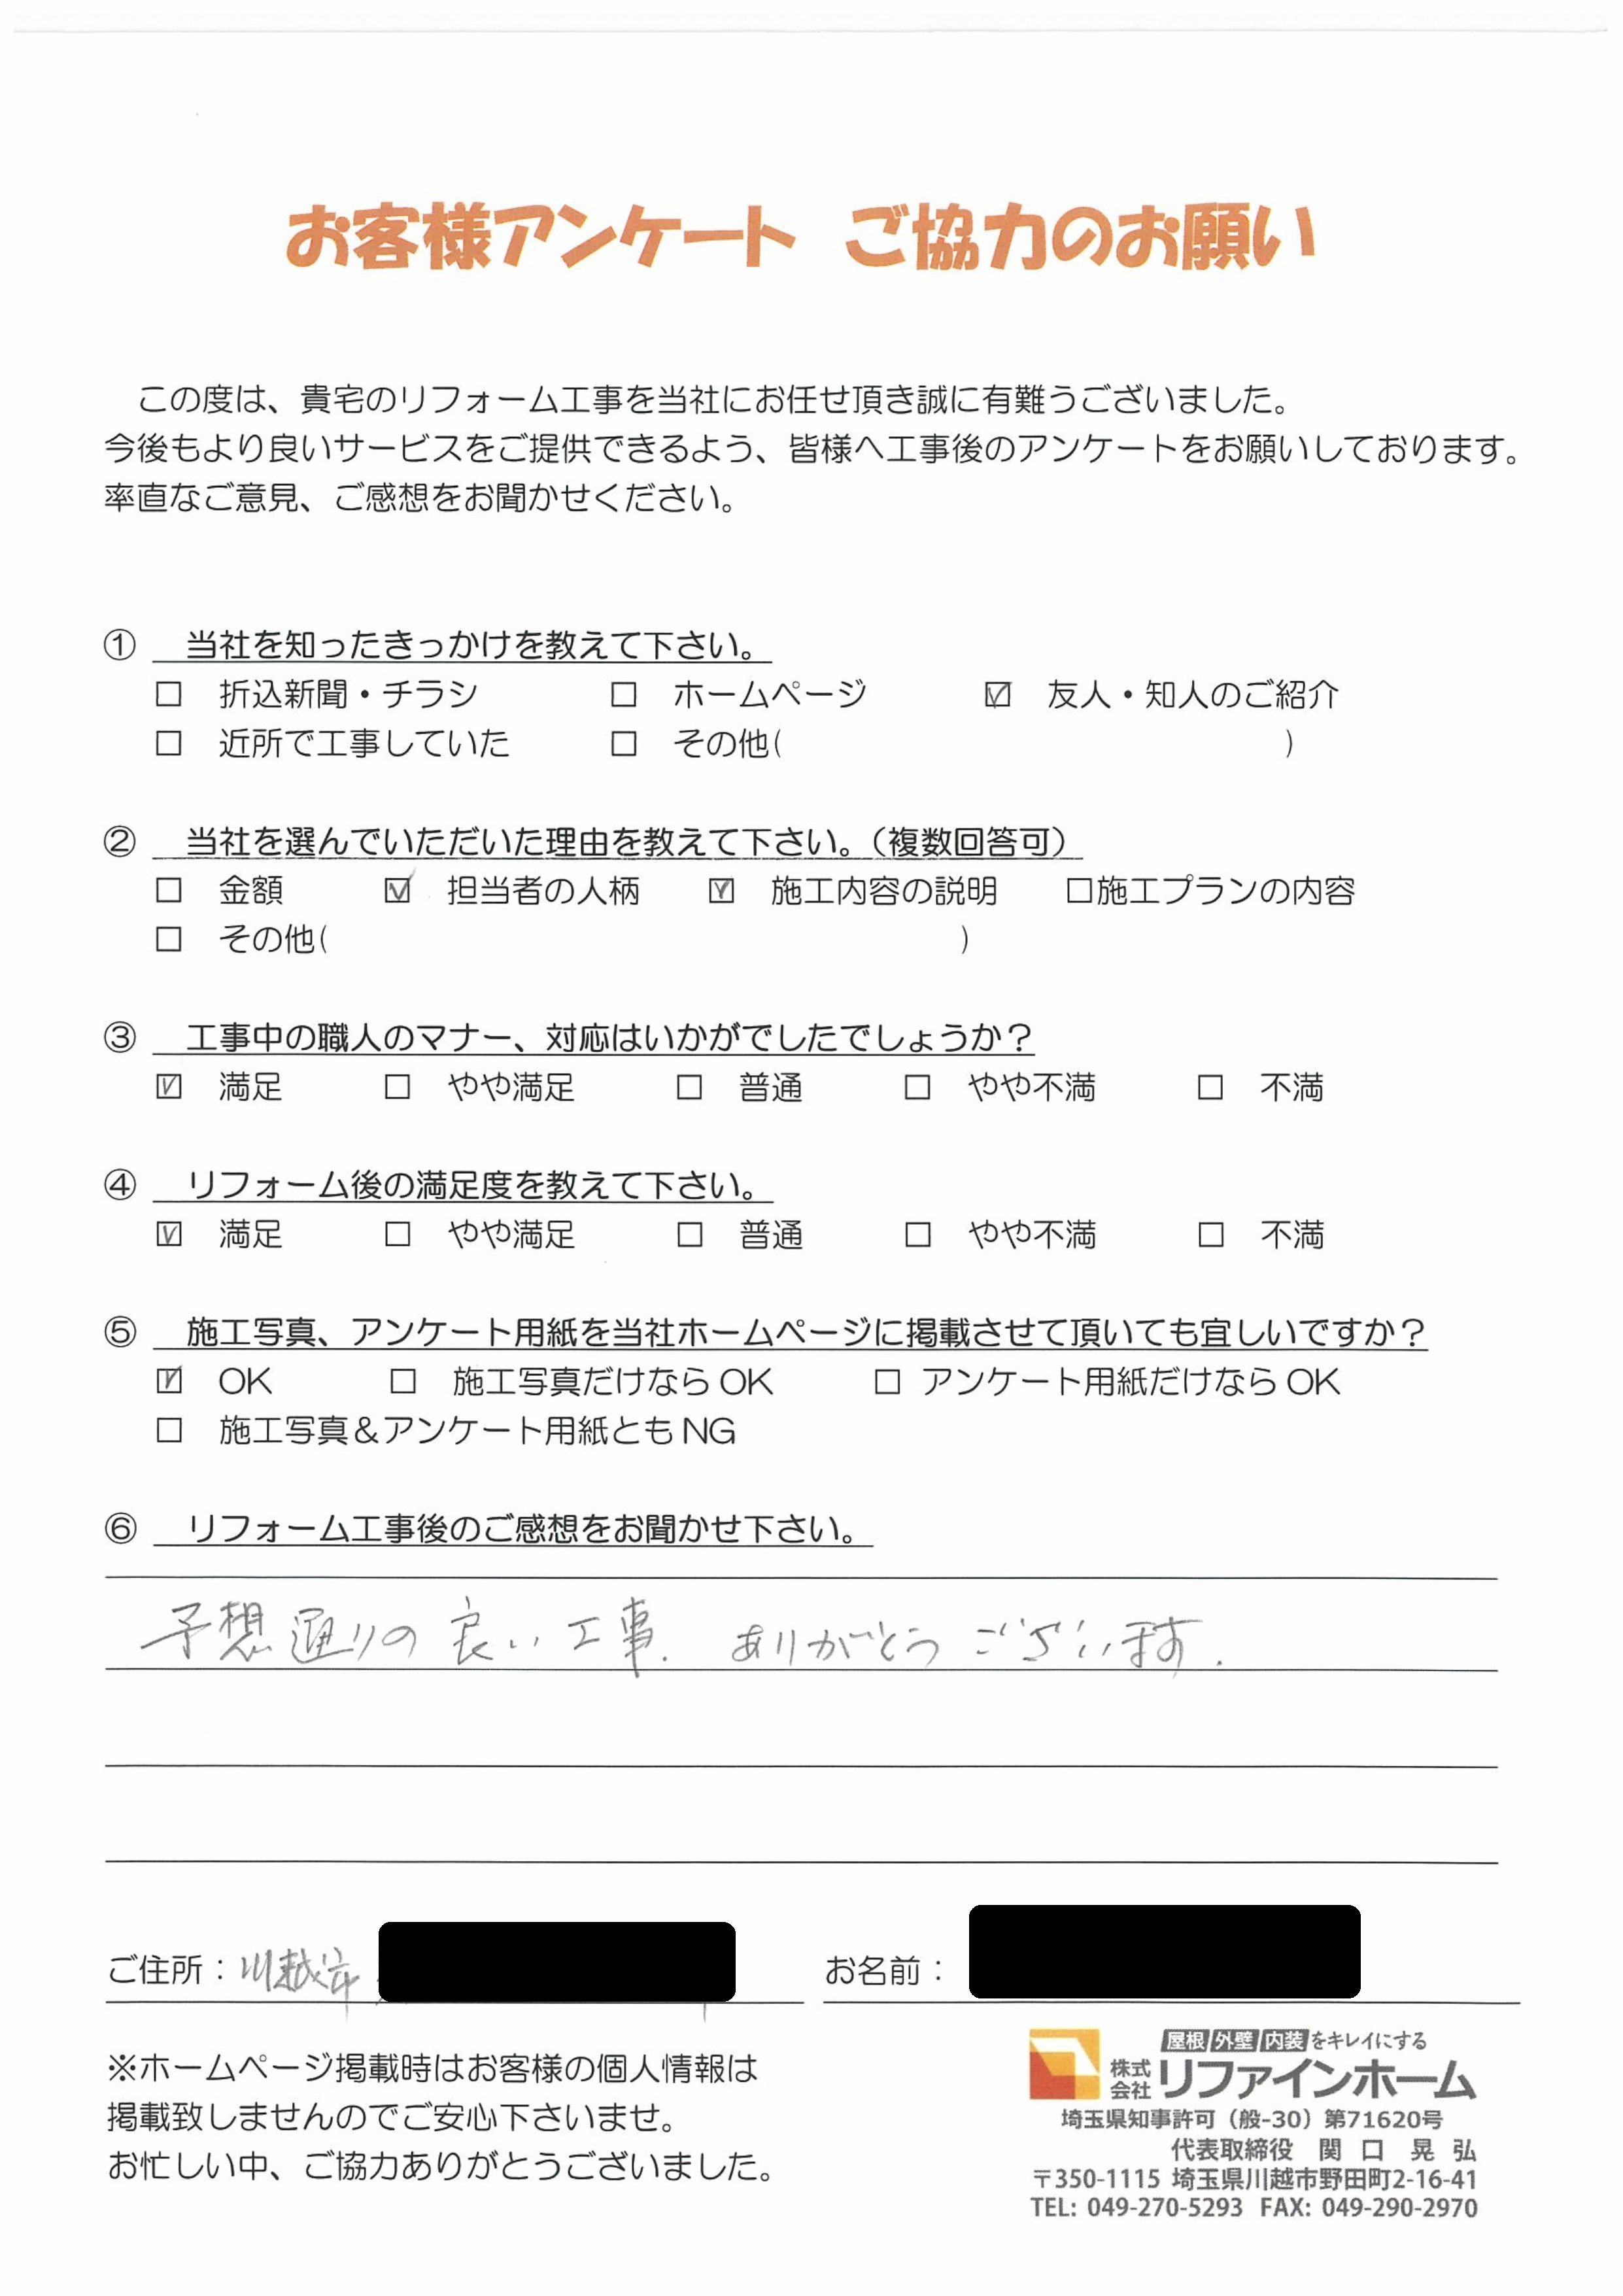 お客様アンケート ご協力のお願い
この度は、貴宅のリフォーム工事を当社にお任せ頂き誠に有難うございました。
今後もより良いサービスをご提供できるよう、皆様へ工事後のアンケートをお願いしております。
率直なご意見、ご感想をお聞かせください。
① 当社を知ったきっかけを教えて下さい。
□ 折込新聞・チラシ □ ホームページ ☑ 友人・知人のご紹介
□ 近所で工事していた □ その他( )
② 当社を選んでいただいた理由を教えて下さい。(複数回答可)
□ 金額 ☑ 担当者の人柄 ☑ 施工内容の説明 □施工プランの内容
□ その他( )
③ 工事中の職人のマナー、対応はいかがでしたでしょうか？
☑ 満足 □ やや満足 □ 普通 □ やや不満 □ 不満
④ リフォーム後の満足度を教えて下さい。
☑ 満足 □ やや満足 □ 普通 □ やや不満 □ 不満
⑤ 施工写真、アンケート用紙を当社ホームページに掲載させて頂いても宜しいですか？
☑ OK □ 施工写真だけなら OK □ アンケート用紙だけなら OK
□ 施工写真＆アンケート用紙とも NG
⑥ リフォーム工事後のご感想をお聞かせ下さい。
予想通りの良い工事. ありがとうございます.
ご住所：川越市 お名前：
※ホームページ掲載時はお客様の個人情報は
掲載致しませんのでご安心下さいませ。
お忙しい中、ご協力ありがとうございました。
屋根 外壁 内装 をキレイにする
株式会社 リファインホーム
埼玉県知事許可（般-30）第71620号
代表取締役 関口 晃弘
〒350-1115 埼玉県川越市野田町2-16-41
TEL: 049-270-5293 FAX: 049-290-2970